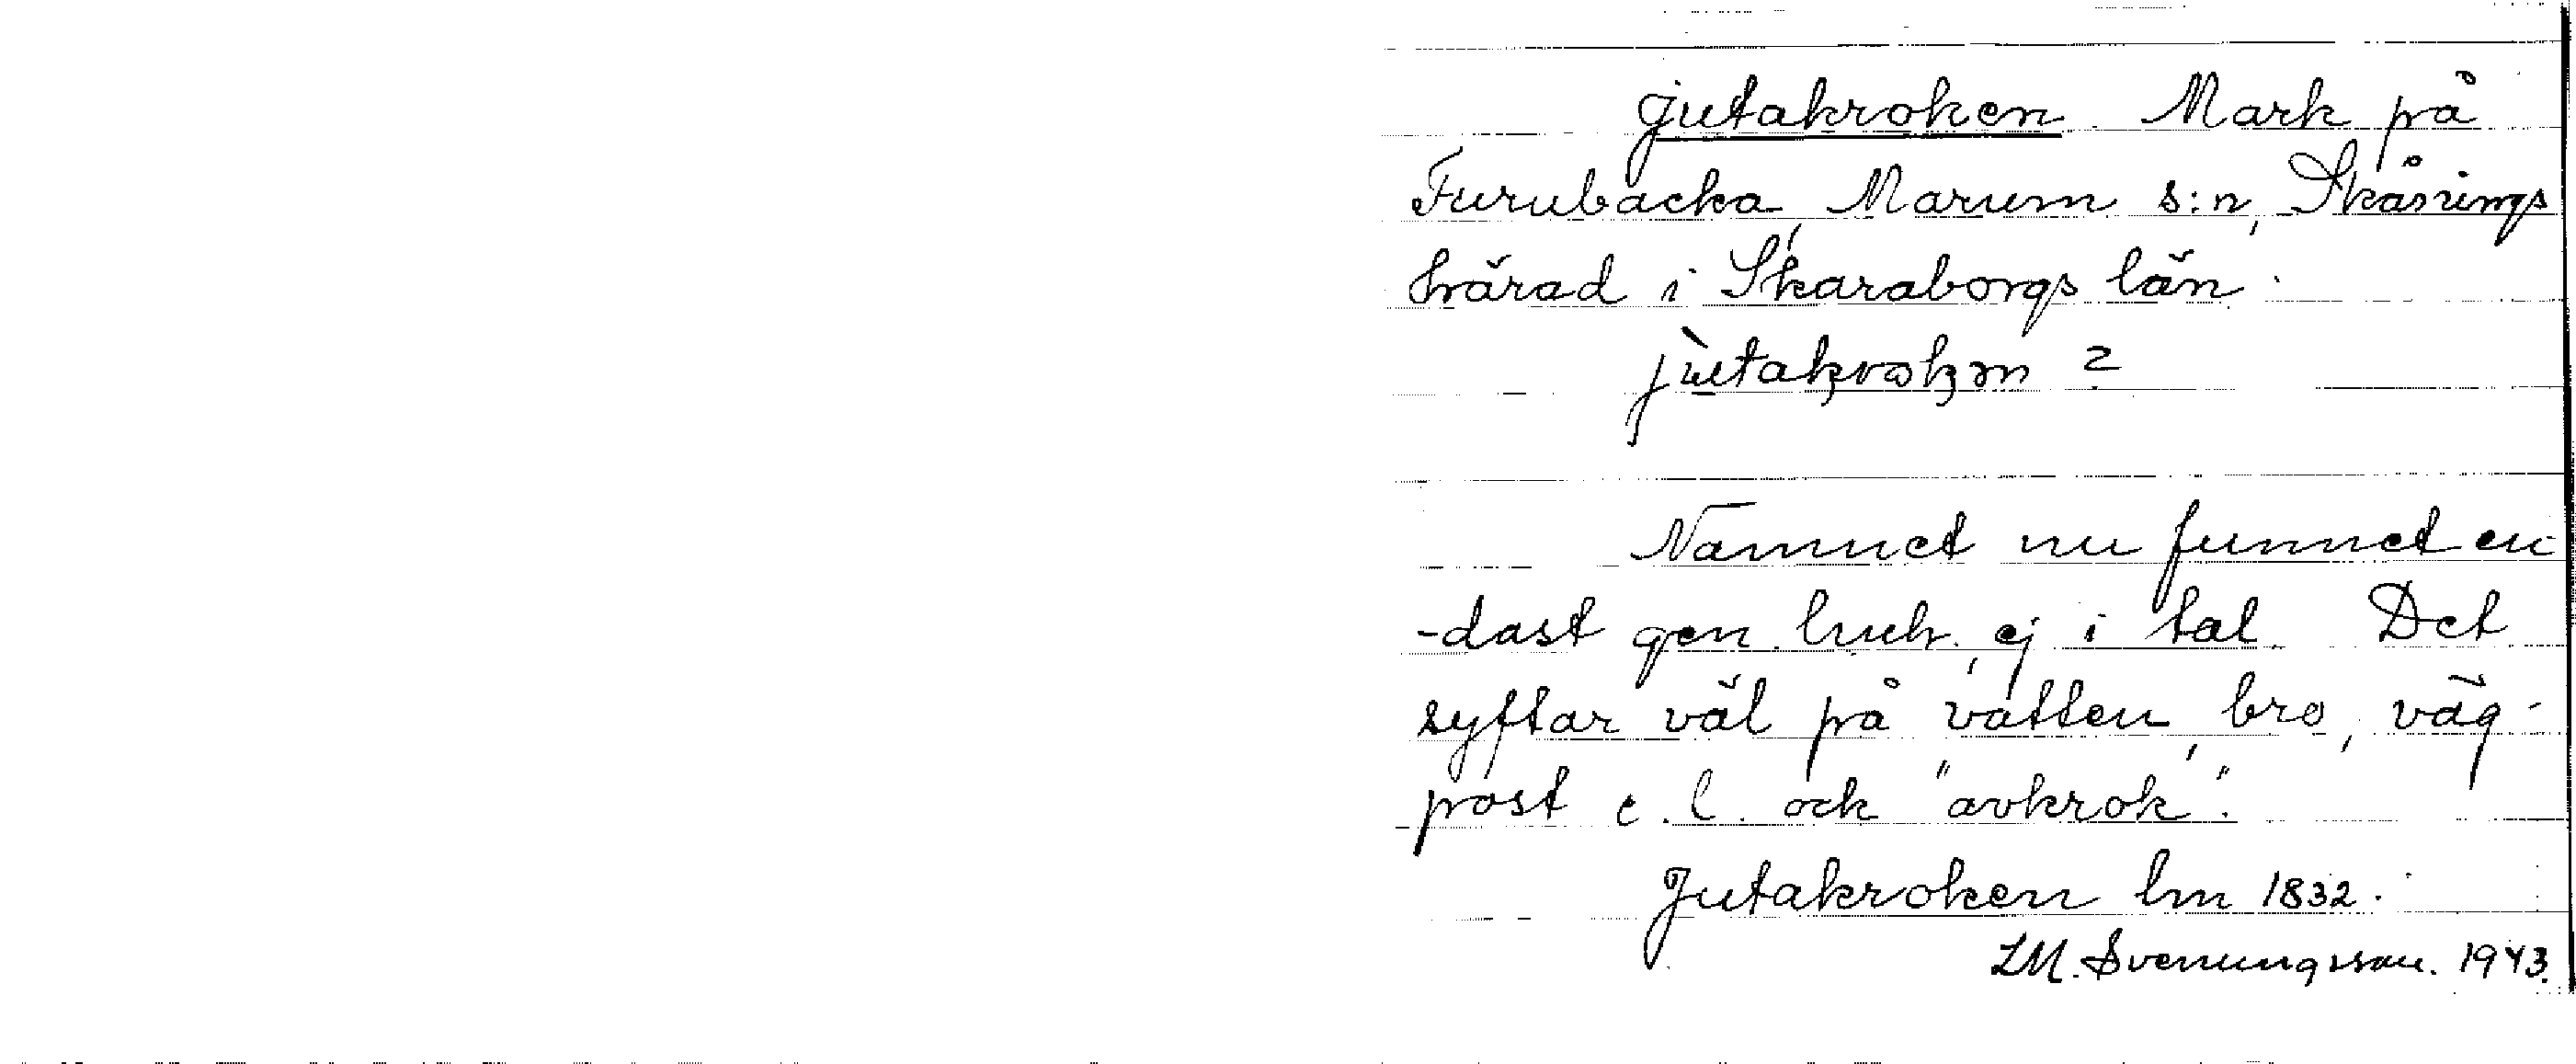 Jutakroken Mark på
Furubacka, Marum s:n, Skånings
härad i Skaraborgs län.
jùtakrokən ?
Namnet nu funnet en
-dast gen. , ej i tal. Det
syftar väl på vatten, bro, väg-
post e. l. och "avkrok".
Jutakroken lm 1832.
LM. Svenungsson. 1943.